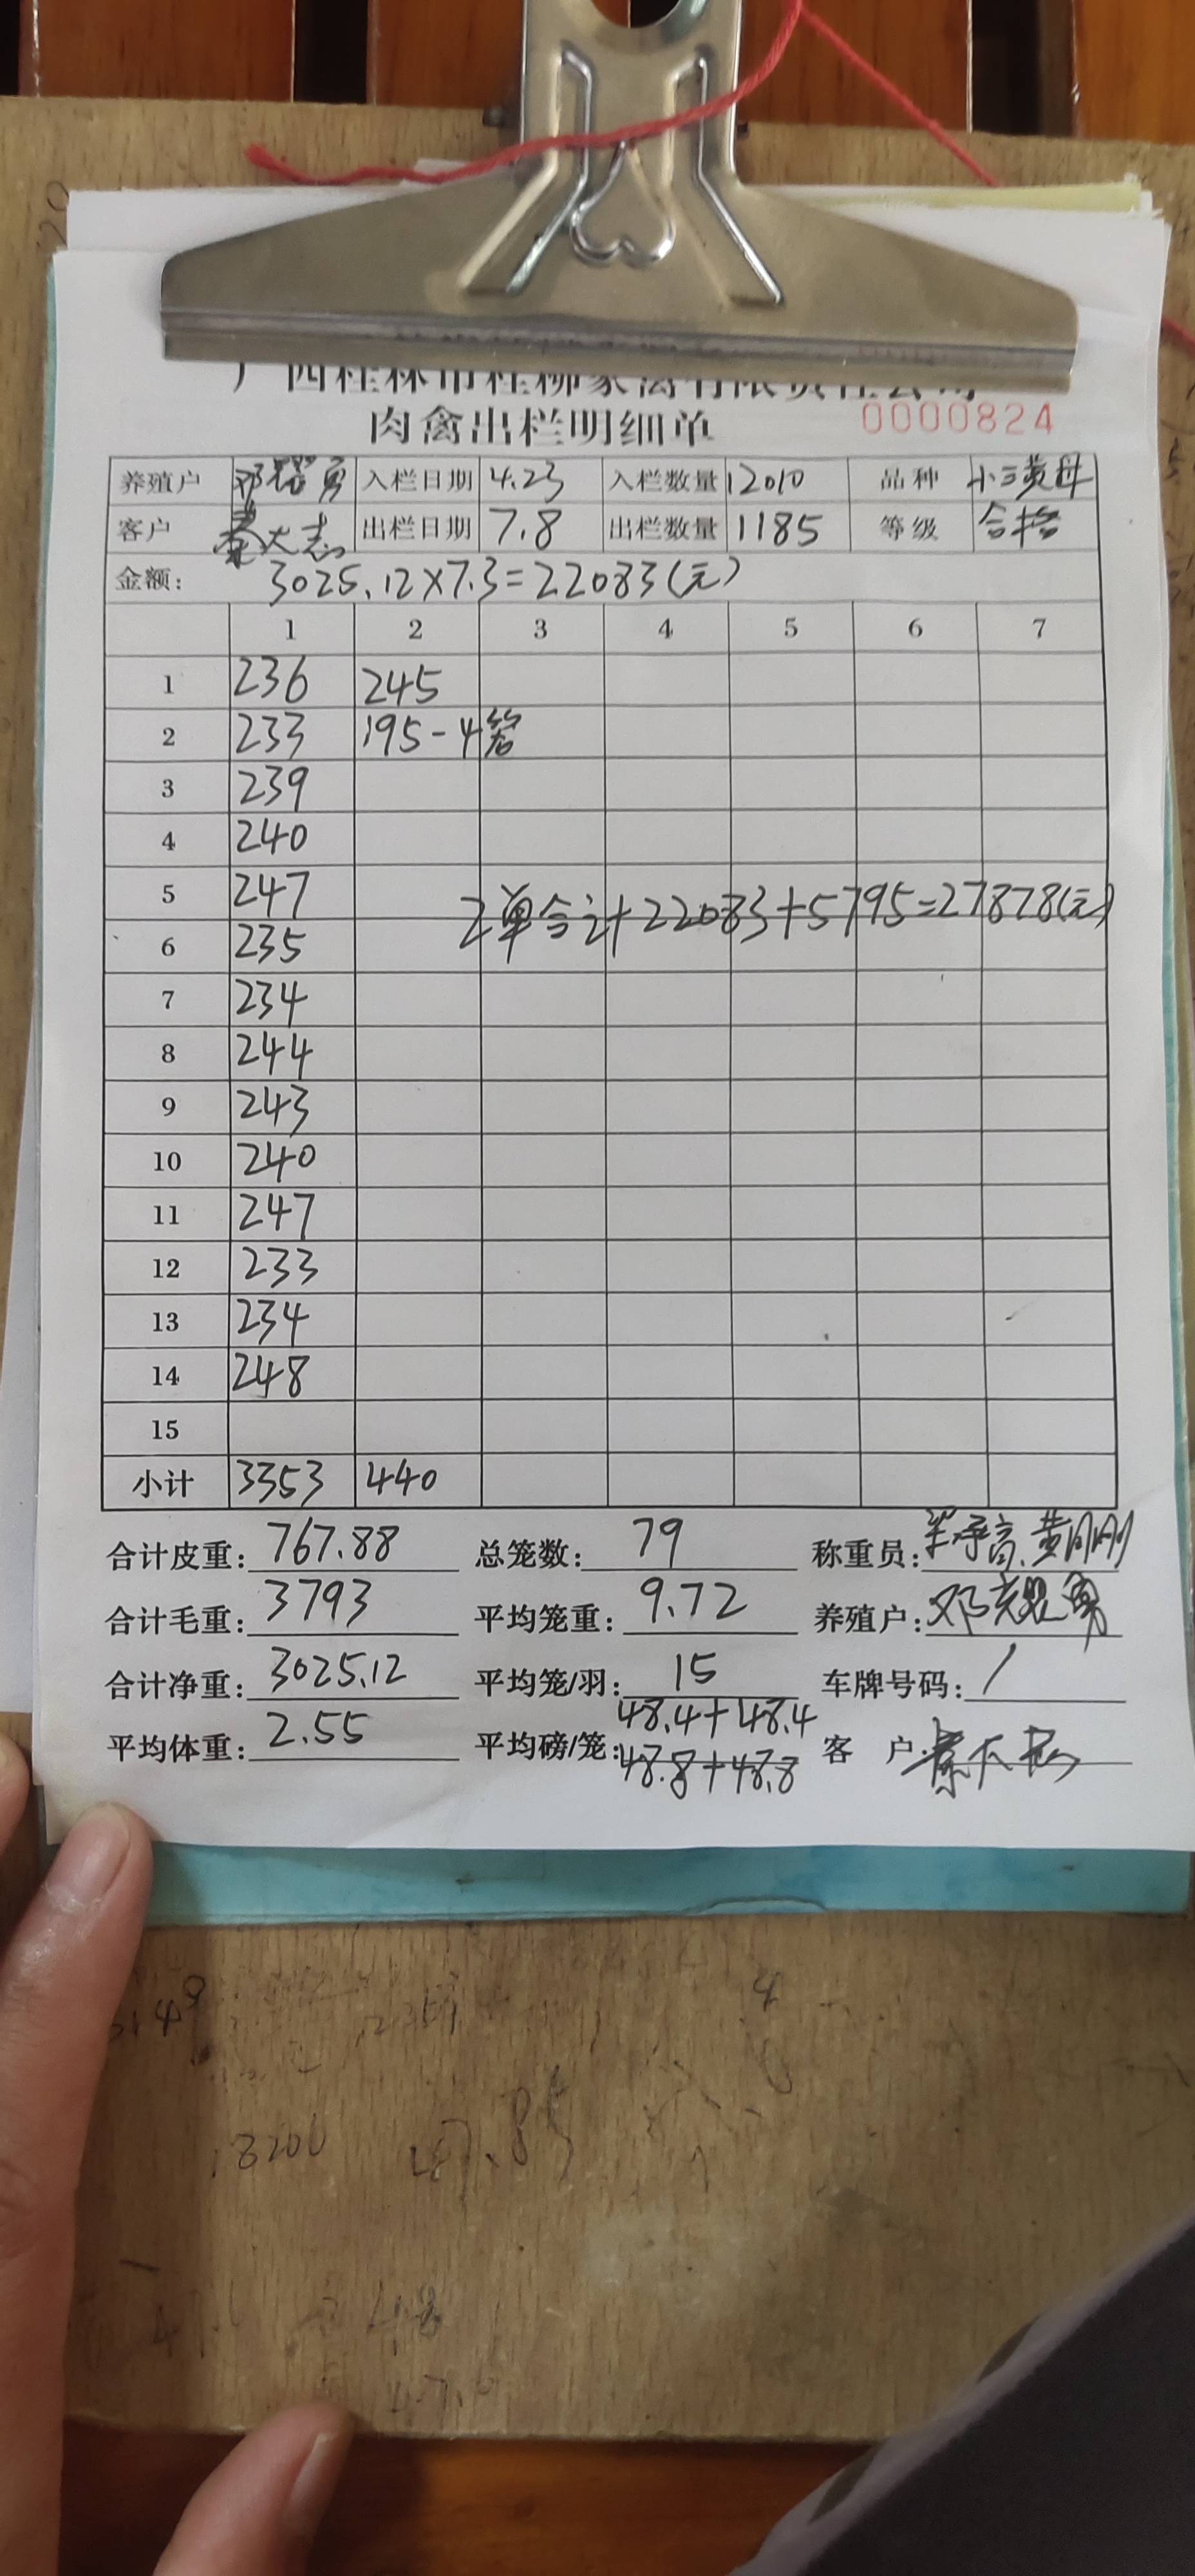 广西桂林市桂柳家禽有限责任公司
肉禽出栏明细单 0000824
养殖户 邓 勇 入栏日期 4.23 入栏数量 12010 品种 小三黄母
客户 大志 出栏日期 7.8 出栏数量 1185 等级 合格
金额: 3025.12×7.3=22083(元)
1 2 3 4 5 6 7
1 236 245
2 233 195-4笼
3 239
4 240
5 247
2单合计22083+5795=27878(元)
6 235
7 234
8 244
9 243
10 240
11 247
12 233
13 234
14 248
15
小计 3353 440
合计皮重: 767.88 总笼数: 79 称重员: 黄刚刚
合计毛重: 3793 平均笼重: 9.72 养殖户: 邓 勇
合计净重: 3025.12 平均笼/羽: 15 车牌号码: /
平均体重: 2.55 平均磅/笼: 48.4+48.4
48.8+48.8 客 户: